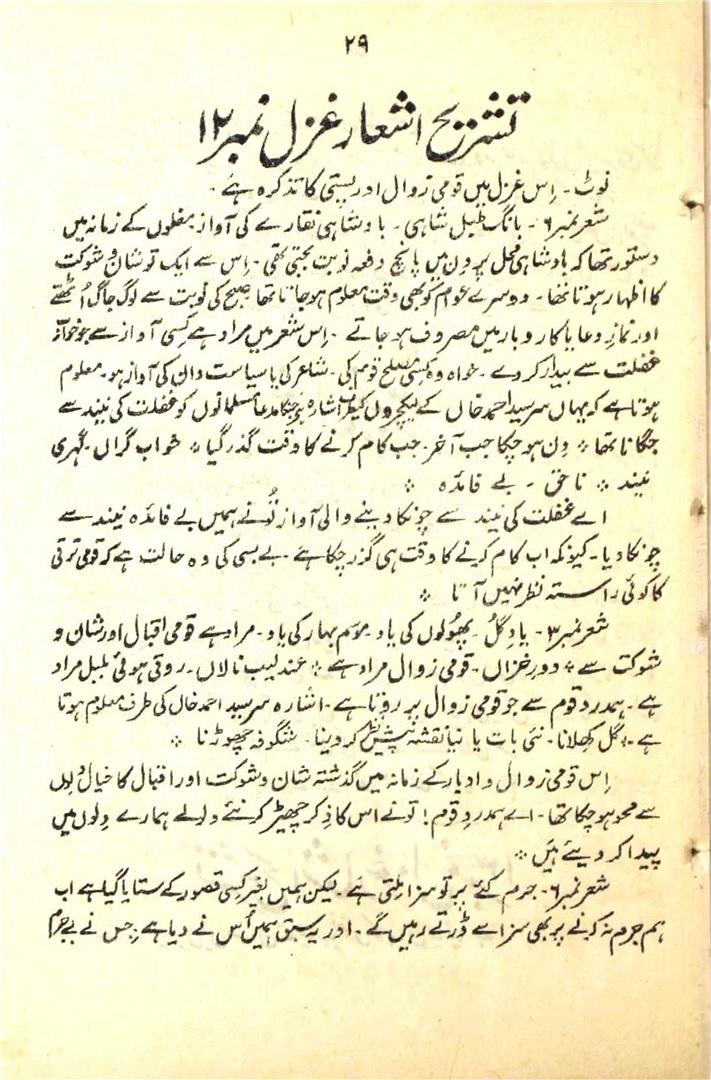 ۲۹
تشریح اشعار غزل نمبر ۱۲
نوٹ ۔ اِس غزل میں قومی زوال اور پستی کا تذکرہ ہے ۔
شعر نمبر ۶ ۔ بانگ طبل شاہی ۔ بادشاہی نقارے کی آواز ۔ مغلوں کے زمانہ میں
دستور تھا کہ بادشاہی محل پر دن میں پانچ دفعہ نوبت بجتی تھی ۔ اِس سے ایک تو شان و شوکت
کا اظہار ہوتا تھا ۔ دوسرے عوام کو بھی وقت معلوم ہو جاتا تھا صبح کی نوبت سے لوگ جاگ اُٹھتے
اور نماز و دعا یا کاروبار میں مصروف ہو جاتے ۔ اِس شعر میں مراد ہے کِسی آواز سے جو خوابِ
غفلت سے بیدار کر دے ۔ خواہ وہ کسی مصلح قوم کی ۔ شاعر کی یا سیاست دان کی آواز ہو ۔ معلوم
ہوتا ہے کہ یہاں سر سید احمد خاں کے لیکچروں کیطرف اشارہ ہے جنکا مدعا مسلمانوں کو غفلت کی نیند سے
جگانا تھا ٭ دِن ہو چکا جب آخر ۔ جب کام کرنے کا وقت گذر گیا ٭ خواب گراں ۔ گہری
نیند ٭ ناحق ۔ بے فائدہ ٭
اے غفلت کی نیند سے چونکا دینے والی آواز تُو نے ہمیں بے فائدہ نیند سے
چونکا دیا ۔ کیونکہ اب کام کرنے کا وقت ہی گزر چکا ہے ۔ بے بسی کی وہ حالت ہے کہ قومی ترقی
کا کوئی راستہ نظر نہیں آتا ٭
شعر نمبر ۳ ۔ یادِ گُل ۔ پھُولوں کی یاد ۔ موسم بہار کی یاد ۔ مراد ہے قومی اقبال اور شان و
شوکت سے ٭ دورِ خزاں ۔ قومی زوال مراد ہے ٭ عندلیب نالاں ۔ روتی ہوئی بلبل مراد
ہے ۔ ہمدرد قوم سے جو قومی زوال پر روتا ہے ۔ اشارہ سر سید احمد خاں کی طرف معلوم ہوتا
ہے ۔ گُل کھلانا ۔ نئی بات یا نیا نقشہ پیش کر دینا ۔ شگوفہ چھوڑنا ٭
اِس قومی زوال و ادبار کے زمانہ میں گذشتہ شان و شوکت اور اقبال کا خیال دلوں
سے محو ہو چکا تھا ۔ اے ہمدردِ قوم! تو نے اس کا ذِکر چھیڑ کر نئے ولولے ہمارے دلوں میں
پیدا کر دیئے ہیں ٭
شعر نمبر ۶ ۔ جرم کئے پر تو سزا ملتی ہے ۔ لیکن ہمیں بغیر کِسی قصور کے ستایا گیا ہے اب
ہم جرم نہ کرنے پر بھی سزا سے ڈرتے رہیں گے ۔ اور یہ سبق ہمیں اُس نے دیا ہے جس نے بے جرم